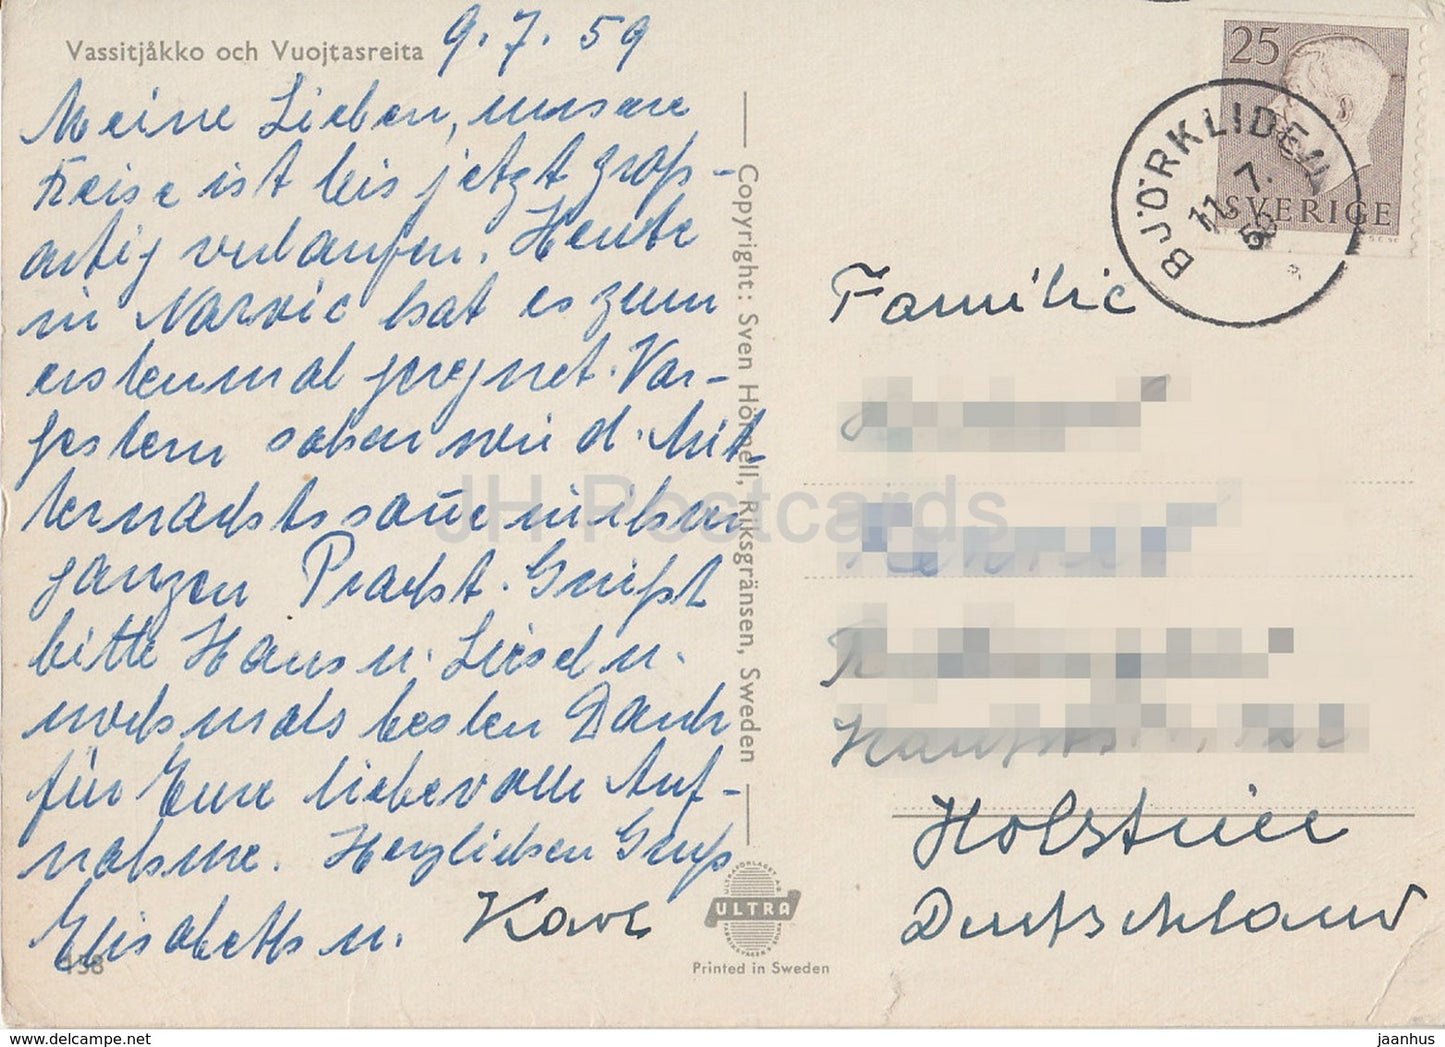 Vassitjåkko och Vuojtasreita 9.7.59
Meine Lieben, unsere
Reise ist bis jetzt groß-
artig verlaufen. Heute
in Narvic hat es zum
erstenmal geregnet. Vor-
gestern sahen wir d. Mit-
ternachtssonne in ihrer
ganzen Pracht. Grüßt
bitte Hans u. Liesel u.
nochmals besten Dank
für Eure liebevolle Auf-
nahme. Herzlichen Gruß
Elisabeth u. Karl
158
Copyright: Sven Hörnell, Riksgränsen, Sweden
ULTRA
Printed in Sweden
25
SVERIGE
BJÖRKLIDEN
11.7.
59
Familie
Holstein
Deutschland
JH Postcards
jh-postcards.com
jaanhus